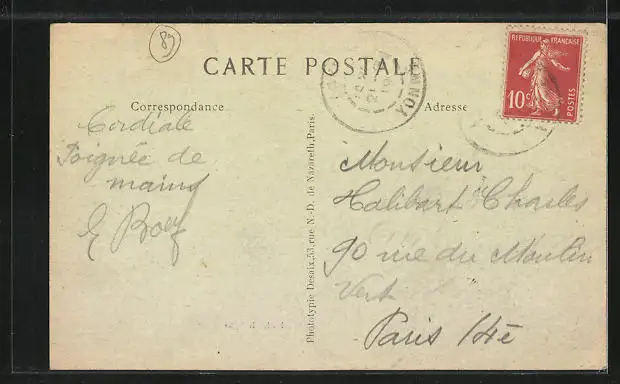 89
CARTE POSTALE
REPUBLIQUE FRANÇAISE
10c
POSTES
YONNE
Correspondance
Adresse
Cordiale
Poignée de
mains
Photótypie Desaix, 53, rue N.-D. de Nazareth, Paris.
Monsieur
Halibart Charles
90 rue du Moulin
Vert
Paris 14e